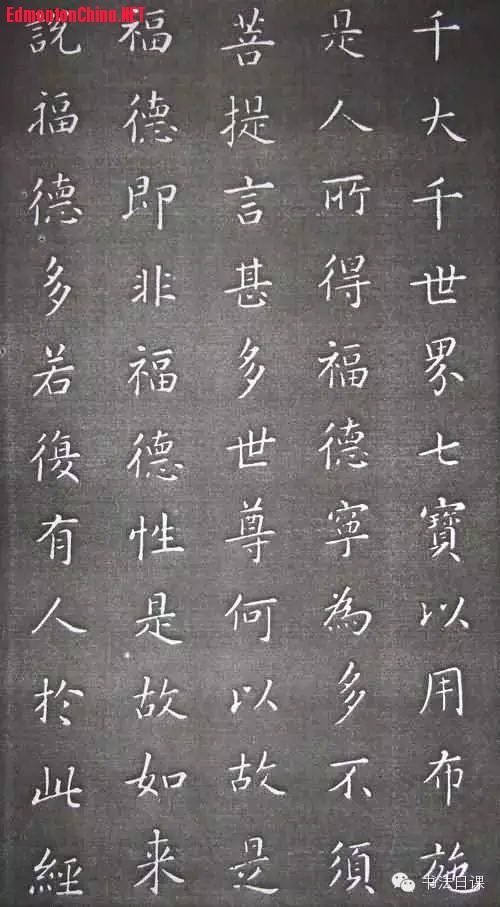 EdmontonChina.NET
千大千世界七寶以用布施
是人所得福德寧為多不須
菩提言甚多世尊何以故是
福德即非福德性是故如来
說福德多若復有人於此經
书法日课